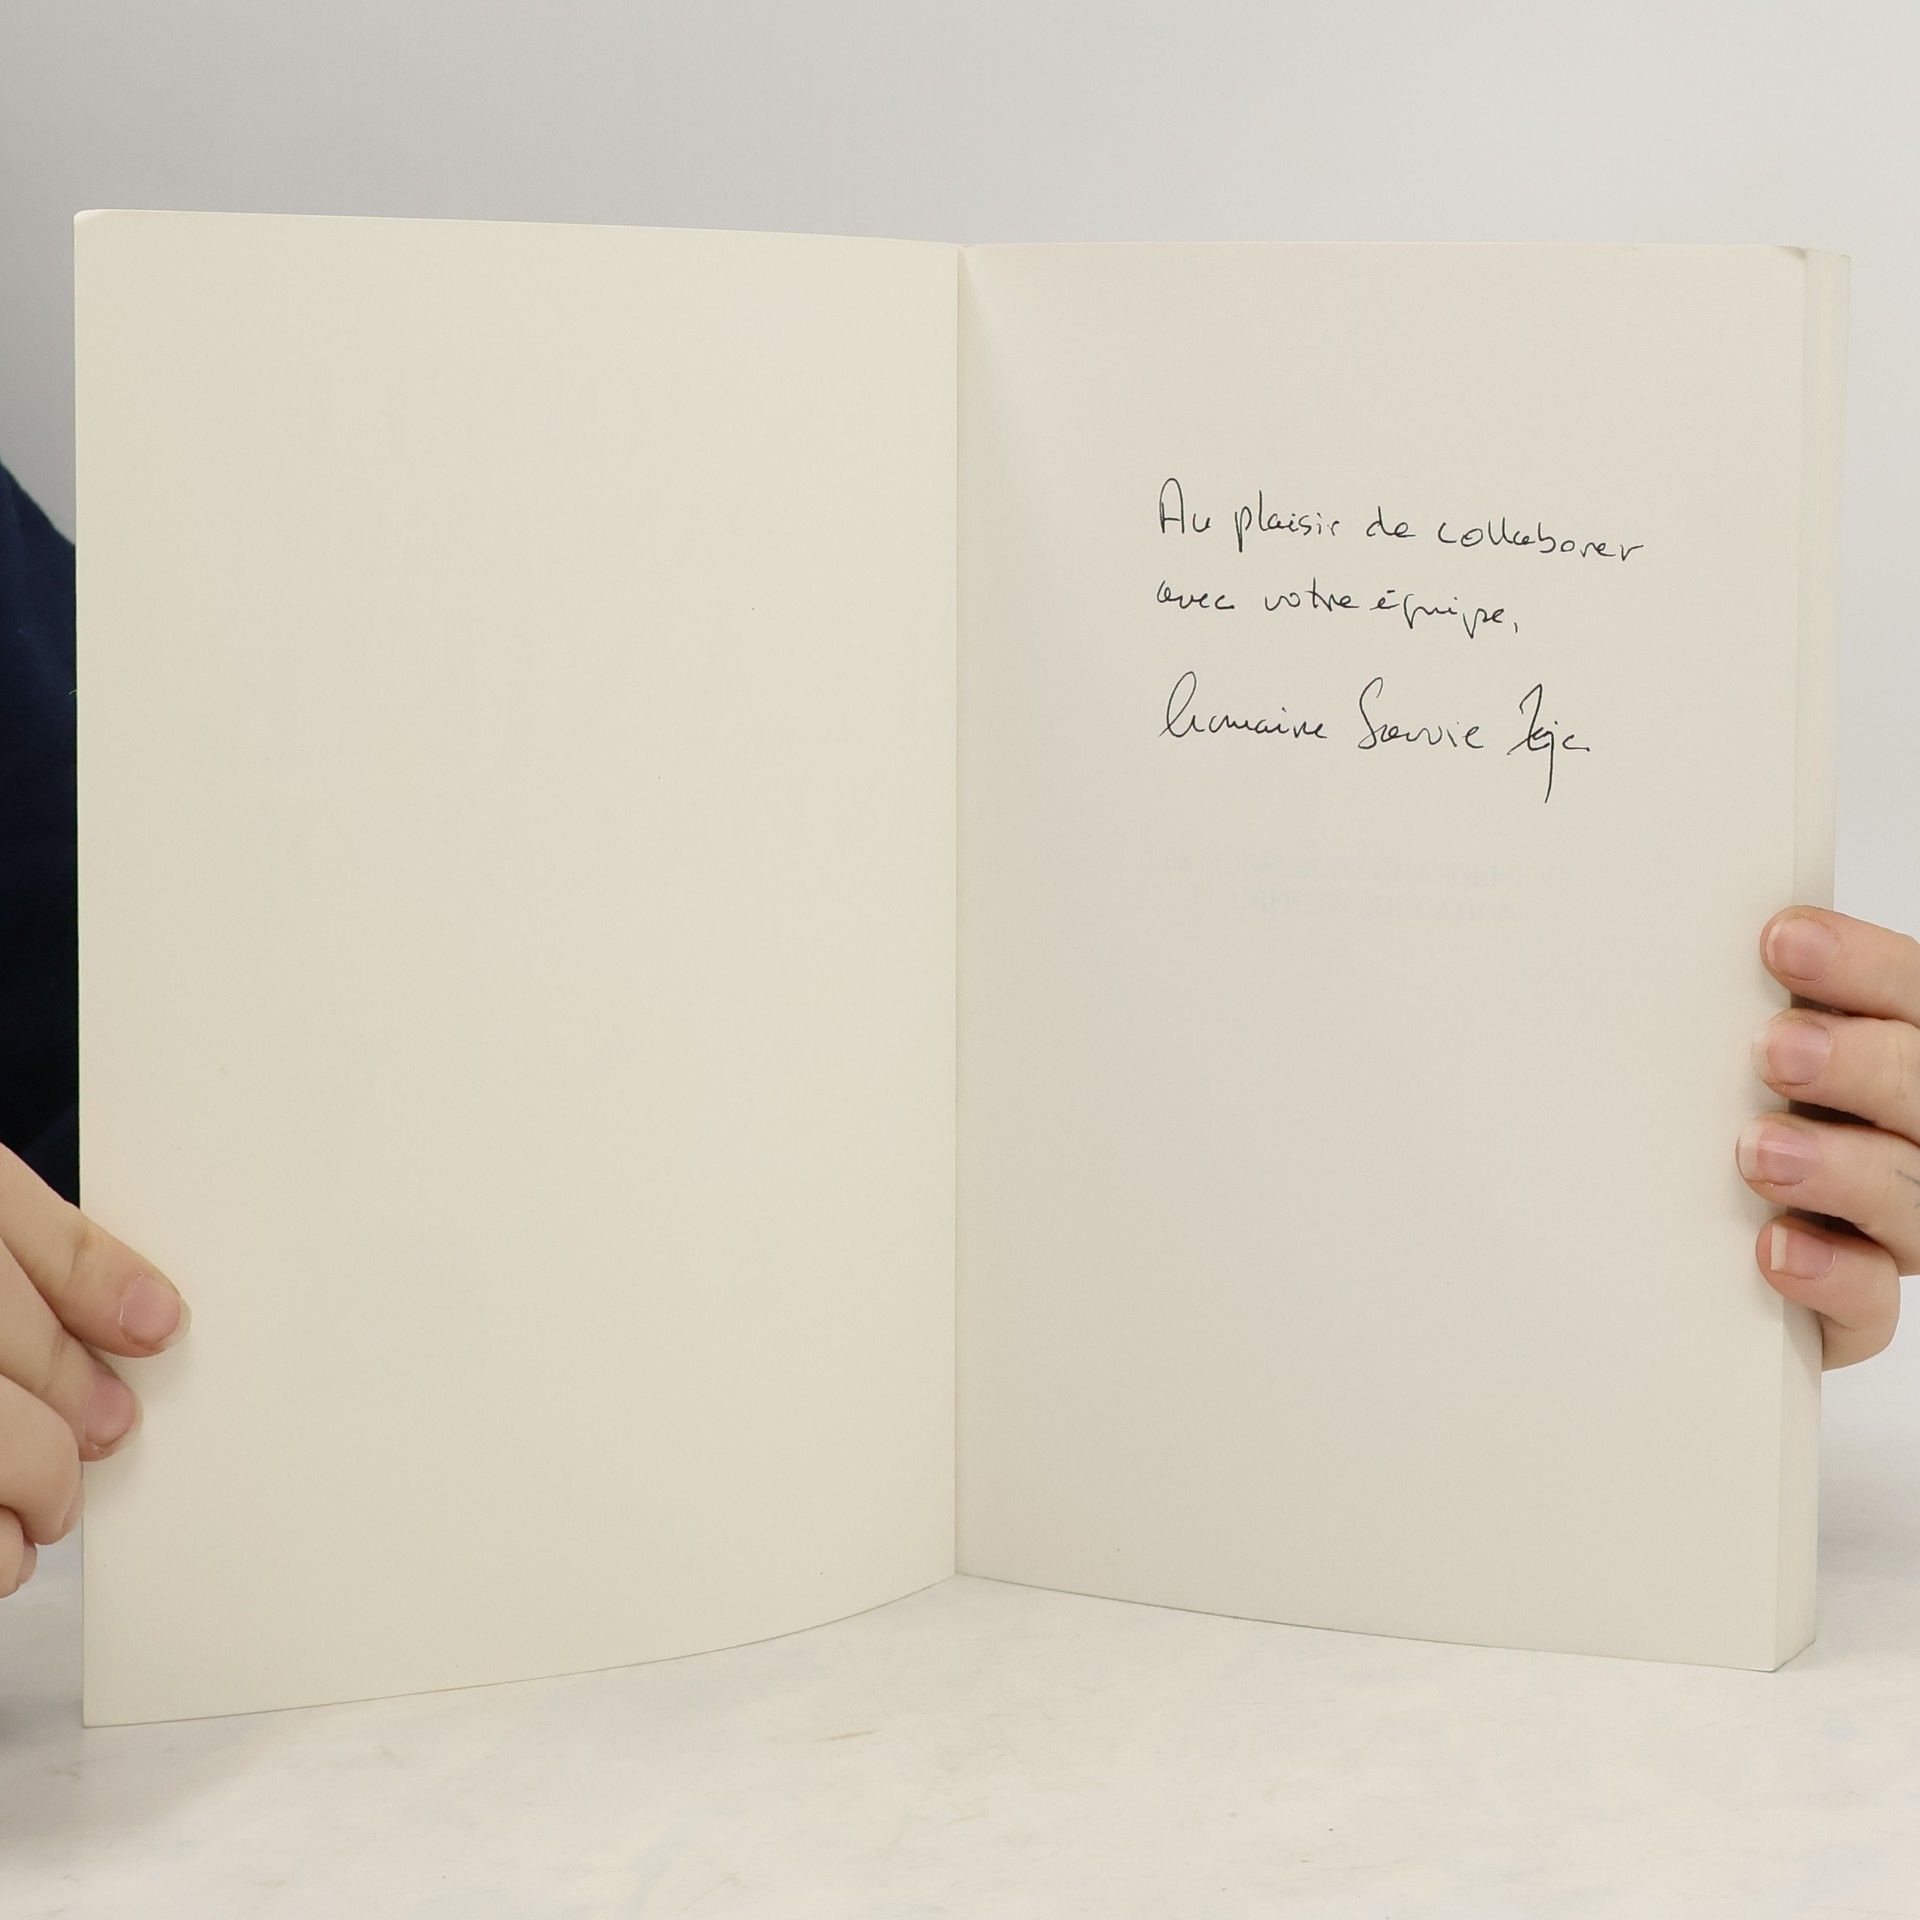 Au plaisir de collaborer
avec votre équipe,
Lorraine Savoie Zajc